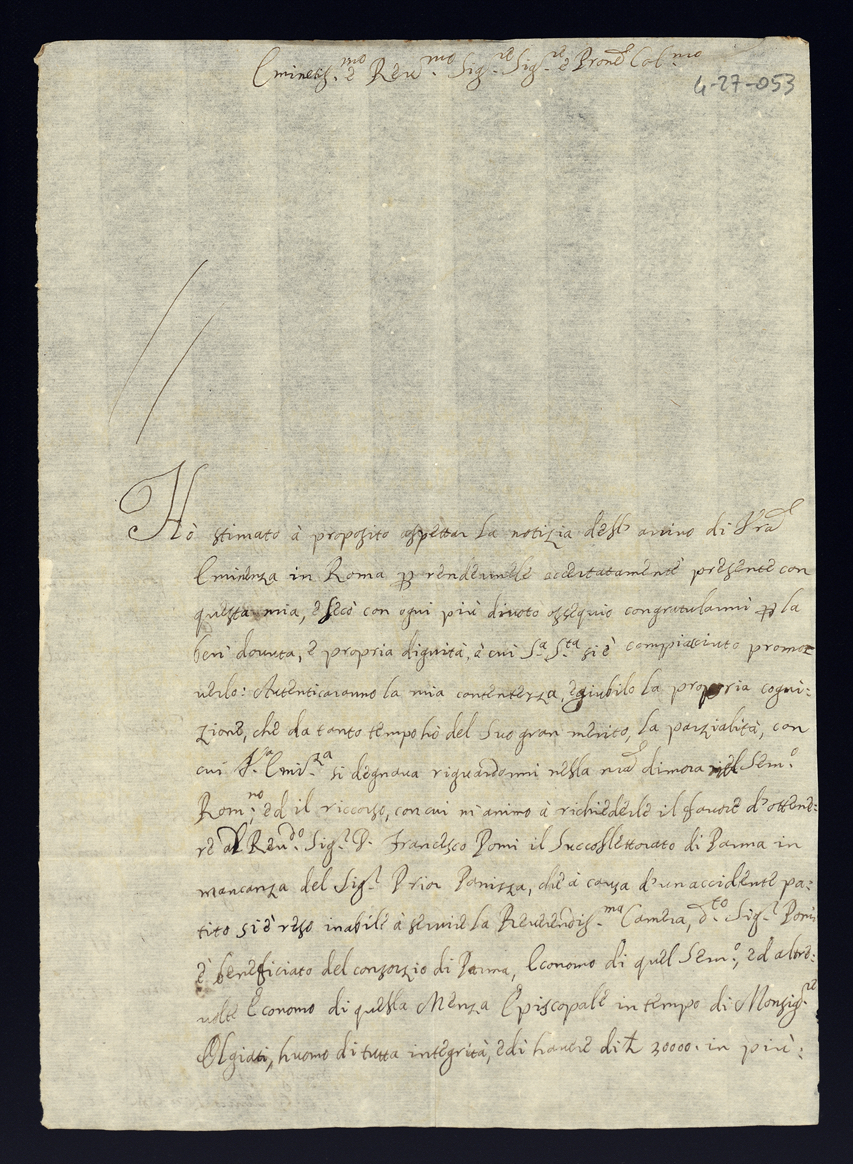 Eminen.mo e Reu.mo Sig.re Sig.re e Prone Col.mo
4-27-053
Hò stimato à proposito aspettar la notizia dell' arriuo di Vra
Eminenza in Roma per rendermele accertatamente presente con
questa mia, e seco con ogni più diuoto ossequio congratularmi per la
ben douuta, e propria dignità, à cui S.a S.ta si è compiaciuto promo-
uerlo: Autenticaranno la mia contentezza, e giubilo la propria cogni:
zione, che da tanto tempo hò del suo gran merito, la parzialità, con
cui V.a Emi.za si degnaua riguardarmi nella mia dimora nel Sem.o
Rom.no, ed il ricorso, con cui m' animo à richiederle il fauore d' ottene:
re al Reu.do Sig.r D. Francesco Pomi il Succollettorato di Parma in
mancanza del Sig.r Prior Panizza, che à causa d' un accidente pa:
tito si è reso inabile à seruire la Reuerendis.ma Camera, d.to Sig.r Pomi
è beneficiato del consorzio di Parma, Economo di quel Sem.o, ed altre:
uolte Economo di quella Menza Episcopale in tempo di Monsig.re
Olgiati, huomo di tutta integrità, e di hauere di 30000. in più: